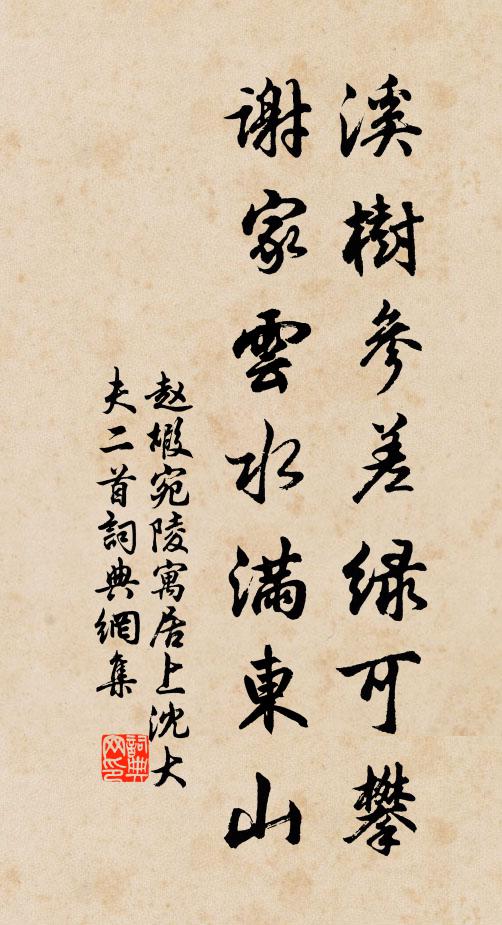 溪樹參差緑可攀
謝家雲水滿東山
赵嘏宛陵寓居上沈大
夫二首詞典網集
詞典网印